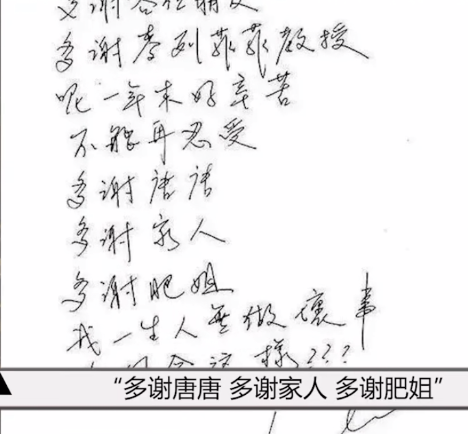 多谢各位朋友
多谢麥列菲菲教授
呢一年来好辛苦
不能再忍受
多谢唐唐
多谢家人
多谢肥姐
我一生人無做壞事
樣???
“多谢唐唐 多谢家人 多谢肥姐”